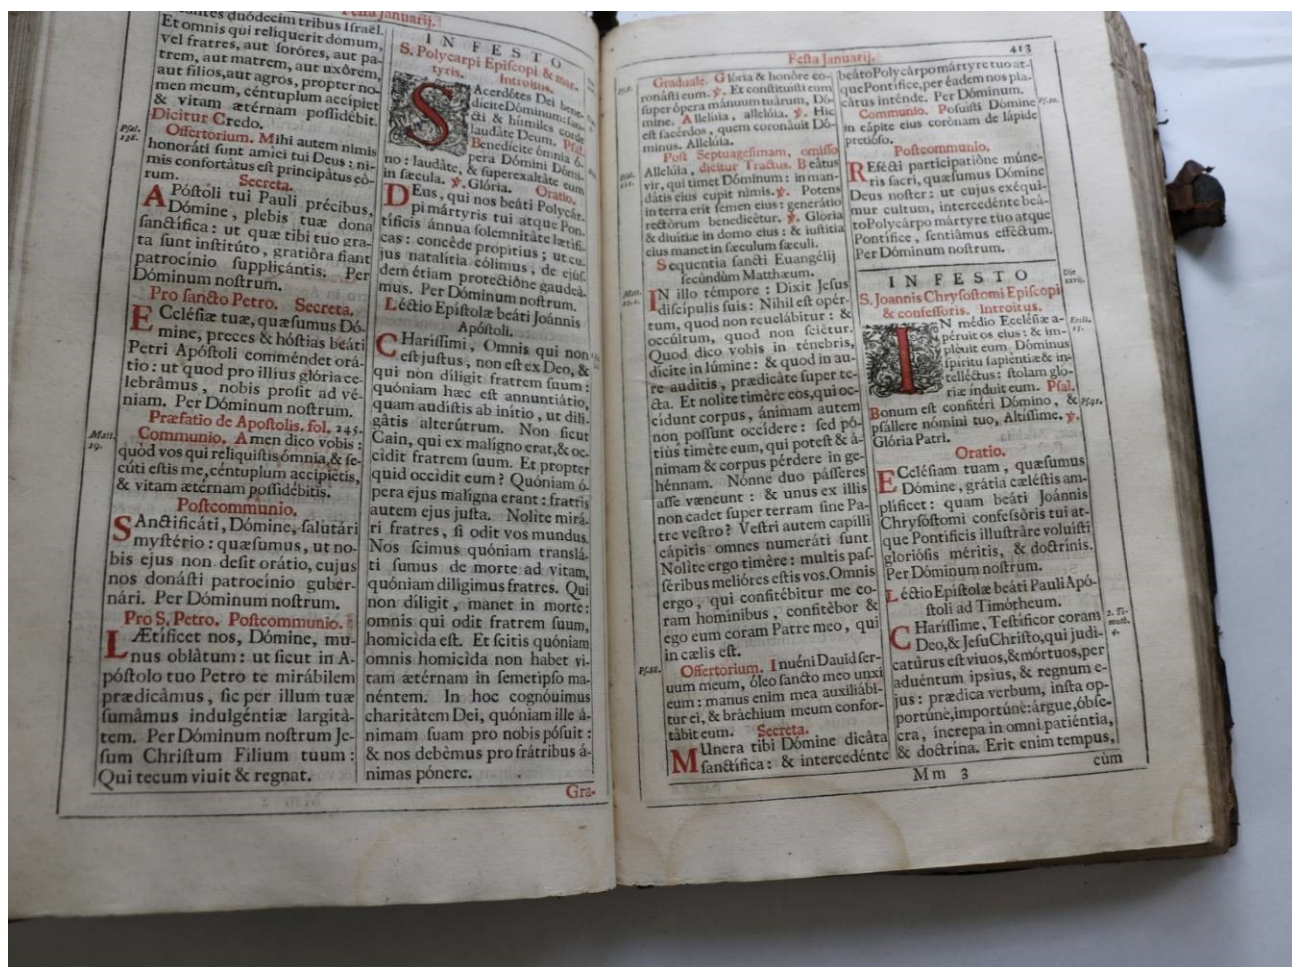 Festa Januarij.
duódecim tribus Israël.
Et omnis qui reliquerit domum,
vel fratres, aut soróres, aut pa-
trem, aut matrem, aut uxôrem,
aut filios, aut agros, propter no-
men meum, céntuplum accipiet
& vitam ætérnam possidébit.
Dicitur Credo.
Psal. 138.
Offertorium. Mihi autem nimis
honoráti sunt amici tui Deus : ni-
mis confortátus est principâtus eò-
rum.
Secreta.
APóstoli tui Pauli précibus,
Dómine, plebis tuæ dona
sanctífica : ut quæ tibi tuo gra-
ta sunt institúto, gratiôra fiant
patrocínio supplicántis. Per
Dóminum nostrum.
Pro sancto Petro. Secreta.
ECclésiæ tuæ, quæsumus Dó-
mine, preces & hóstias beáti
Petri Apóstoli comméndet orá-
tio : ut quod pro illíus glória ce-
lebrâmus, nobis prosit ad vé-
niam. Per Dóminum nostrum.
Præfatio de Apostolis. fol. 245.
Matt. 19.
Communio. Amen dico vobis :
quòd vos qui reliquístis ómnia, & se-
cúti estis me, céntuplum accipiétis,
& vitam ætérnam possidébitis.
Postcommunio.
SAnctificáti, Dómine, salutári
mystério : quæsumus, ut no-
bis ejus non desit orátio, cujus
nos donásti patrocínio guber-
nári. Per Dóminum nostrum.
Pro S. Petro. Postcommunio.
LÆtíficet nos, Dómine, mu-
nus oblâtum : ut sicut in A-
póstolo tuo Petro te mirábilem
prædicâmus, sic per illum tuæ
sumâmus indulgéntiæ largità-
tem. Per Dóminum nostrum Je-
sum Christum Filium tuum :
Qui tecum viuit & regnat.
IN FESTO
S. Polycarpi Episcopi & mar-
tyris. Introitus.
SAcerdótes Dei bene-
dícite Dóminum : san-
cti & húmiles corde
laudáte Deum. Psal.
Benedícite ómnia ó-
pera Dómini Dómi-
no : laudáte, & superexaltáte eum
in sæcula. ℣. Glória. Oratio.
DEus, qui nos beáti Polycár-
pi mártyris tui atque Pon-
tíficis ánnua solemnitáte lætífi-
cas : concéde propítius ; ut cu-
jus natalítia cólimus, de ejús-
dem étiam protectiône gaudeá-
mus. Per Dóminum nostrum.
Léctio Epístolæ beáti Joánnis
Apóstoli.
CHaríssimi, Omnis qui non
est justus, non est ex Deo, &
qui non díligit fratrem suum :
quóniam hæc est annuntiátio,
quam audístis ab inítio, ut dili-
gâtis altérútrum. Non sicut
Cain, qui ex malígno erat, & oc-
cídit fratrem suum. Et propter
quid occídit eum ? Quóniam ó-
pera ejus malígna erant : fratris
autem ejus justa. Nolíte mirá-
ri fratres, si odit vos mundus.
Nos scimus quóniam translá-
ti sumus de morte ad vitam,
quóniam dilígimus fratres. Qui
non díligit, manet in morte :
omnis qui odit fratrem suum,
homicída est. Et scitis quóniam
omnis homicída non habet vi-
tam ætérnam in semetípso ma-
néntem. In hoc cognóuimus
charitàtem Dei, quóniam ille á-
nimam suam pro nobis pósuit :
& nos debèmus pro frátribus á-
nimas pónere.
Gra-
Festa Januarij.
413
Graduale. Glória & honôre co-
ronásti eum. ℣. Et constituísti eum
super ópera mánuum tuárum, Dó-
mine. Allelúia, allelúia. ℣. Hic
est sacérdos, quem coronáuit Dó-
minus. Allelúia.
Post Septuagesimam, omisso
Allelúia, dicitur Tractus. Beátus
vir, qui timet Dóminum : in man-
dátis eius cupit nimis. ℣. Potens
in terra erit semen eius : generátio
rectórum benedicétur. ℣. Glória
& diuítiæ in domo eius : & iustítia
eius manet in sæculum sæculi.
Sequentia sancti Euangélij
secúndùm Matthæum.
IN illo témpore : Dixit Jesus
discípulis suis : Nihil est opér-
tum, quod non reuelábitur : &
occúltum, quod non sciétur.
Quod dico vobis in ténebris,
dícite in lúmine : & quod in au-
re audítis, prædicáte super te-
cta. Et nolíte timêre eos, qui oc-
cídunt corpus, ánimam autem
non possunt occídere : sed pó-
tiùs timête eum, qui potest & á-
nimam & corpus pérdere in ge-
hénnam. Nónne duo pásseres
asse væneunt : & unus ex illis
non cadet super terram sine Pa-
tre vestro ? Vestri autem capílli
cápitis omnes numeráti sunt.
Nolíte ergo timêre : multis pas-
séribus melióres estis vos. Omnis
ergo, qui confitébitur me co-
ram homínibus, confitêbor &
ego eum coram Patre meo, qui
in cælis est.
Ps. 88.
Offertorium. Inuéni Dauid ser-
uum meum, óleo sancto meo unxi
eum : manus enim mea auxiliábi-
tur ei, & bráchium meum confor-
tàbit eum. Secreta.
MUnera tibi Dómine dicáta
sanctífica : & intercedénte
beáto Polycárpo mártyre tuo at-
que Pontífice, per éadem nos pla-
cátus inténde. Per Dóminum.
Communio. Posuísti Dómine
in cápite eius corònam de lápide
pretióso.
Ps. 20.
Postcommunio.
REfécti participatiône múne-
ris sacri, quæsumus Dómine
Deus noster : ut cujus exéqui-
mur cultum, intercedénte beá-
to Polycárpo mártyre tuo atque
Pontífice, sentiâmus efféctum.
Per Dóminum nostrum.
IN FESTO
Die xxvij.
S. Joannis Chrysostomi Episcopi
& confessoris. Introitus.
IN médio Ecclésiæ a-
péruit os eius : & im-
pléuit eum Dóminus
spíritu sapiéntiæ & in-
telléctus : stolam gló-
riæ induit eum. Psal.
Eccli. 15.
Bonum est confitéri Dómino, &
psállere nómini tuo, Altíssime. ℣.
Glória Patri.
Ps. 91.
Oratio.
ECclésiam tuam, quæsumus
Dómine, grátia cæléstis am-
plíficet : quam beáti Joánnis
Chrysóstomi confessôris tui at-
que Pontíficis illustráre voluísti
gloriósis méritis, & doctrínis.
Per Dóminum nostrum.
Léctio Epístolæ beáti Pauli Apó-
stoli ad Timótheum.
CHaríssime, Testíficor coram
Deo, & Jesu Christo, qui judi-
catúrus est viuos, & mórtuos, per
aduéntum ipsíus, & regnum e-
jus : prædica verbum, insta op-
portúnè, importúnè : árgue, óbse-
cra, íncrepa in omni patiéntia,
& doctrína. Erit enim tempus,
2. Ti-
moth.
4.
Mm 3
cùm